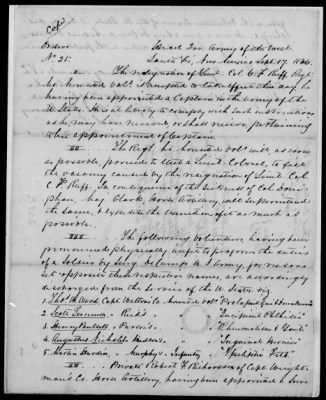 Copy
Orders Head Qrs Army of the West
No. 25. Santa Fe, New Mexico Sept. 17, 1846.
I The resignation of Lieut. Col. C. F. Ruff, Regt.
Mo. mounted vols. is accepted to take effect this day, he
having been appointed a Captain in the Army of the
U. States. He is at liberty to comply with such instructions
as he may have received or shall receive, pertaining
to his appointment of Captain.
II The Regt. Mo. mounted vols. will as soon
as possible, proceed to elect a Lieut. Colonel, to fill
the vacancy caused by the resignation of Lieut. Col.
C. F. Ruff. In consequence of the sickness of Col. Doni-
phan, Maj. Clark, Mo. Artillery, will superintend
the same, & expedite the execution of it as much as
possible.
III The following volunteers, having been
pronounced physically unfit to perform the duties
of a Soldier by Surg. De Camp U.S. Army, for reasons
set opposite their respective names, are accordingly
discharged from the service of the U. States, viz
1. Thos. H. Wood, Capt. Walton's Co. mounted vols.
2. Scott " Reid's " "Incipient Phthisis"
3. Henry " Parsons " "Rheumatism &
4. Augustus Nicholds Hudson's " "Inguinal Hernia"
5. Hardin, " Murphy's Infantry "Epileptic Fits"
IV Private Robert F. Richardson of Capt. Weight-
man's Co. Mo. Artillery, having been appointed a Sur-